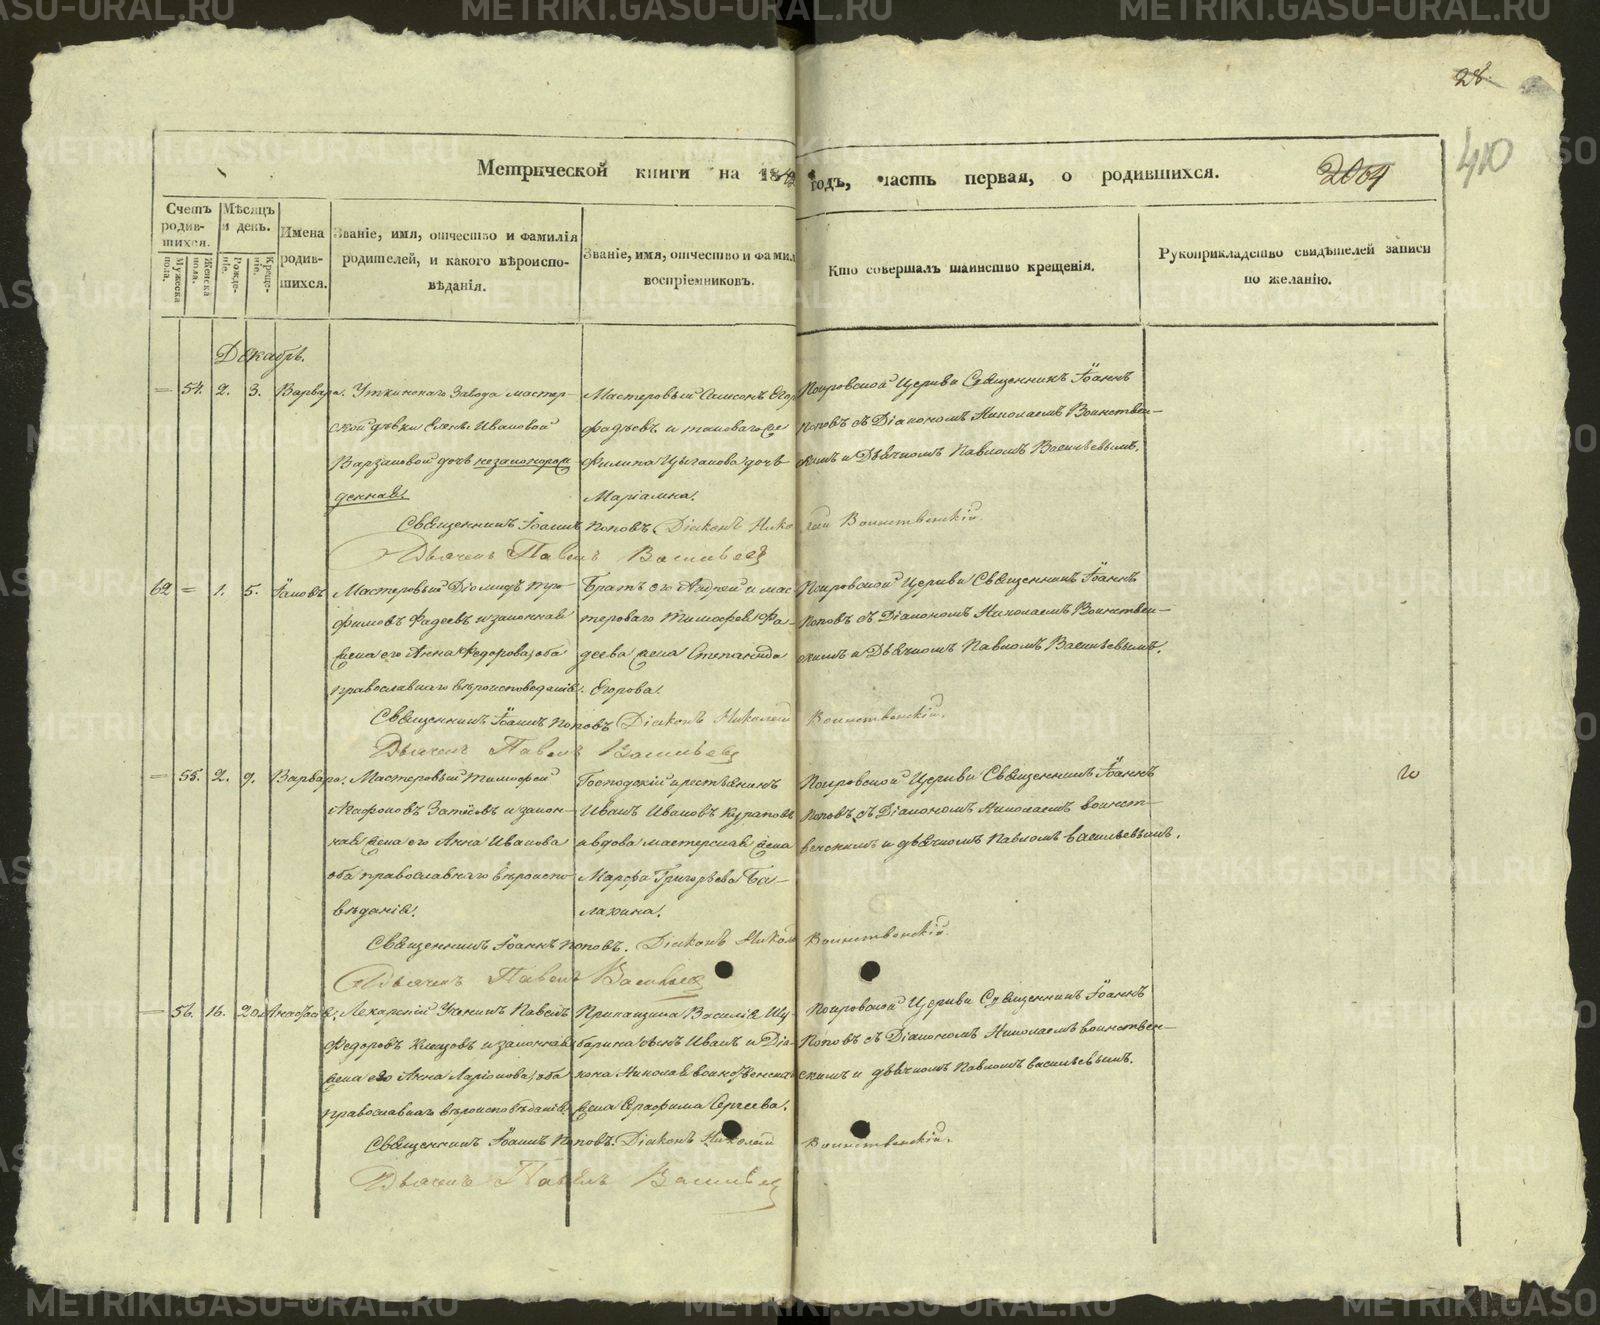 28.
410
Метрической книги на 184 годъ, часть первая, о родившихся.
2064
Счетъ родившихся.
Мужеска пола.
Женска пола.
Мѣсяцъ и день.
Рожденіе.
Крещеніе.
Имена родившихся.
Званіе, имя, отчество и фамилія родителей, и какого вѣроисповѣданія.
Званіе, имя, отчество и фамил воспріемниковъ.
Кто совершалъ таинство крещенія.
Рукоприкладство свидѣтелей записи по желанію.
Декабрь.
54. 2. 3. Варвара.
Уткинскаго Завода мастер-
ской дѣвки Елены Ивановой
дочь незаконорож
денная.
Мастеровый Самсонъ Егор
Фадѣевъ и
Филипа Цыганова дочь
Маріамна.
Покровской Церкви Священникъ Іоаннъ
Поповъ съ Діакономъ Николаемъ Воинствен-
скимъ и Дьячкомъ Павломъ Васильевымъ.
Священникъ Іоаннъ Поповъ Діаконъ Николай Воинственскій.
Дьячекъ Павелъ Васильевъ
62 = 1. 5. Іаковъ
Мастеровый Діомидъ Тро-
фимовъ Фадеевъ и законная
жена его Анна Федорова, оба
православнаго вѣроисповеданія.
Братъ его Андрей и мас
тероваго Тимофея Фа-
деева жена Степанида
Егорова.
Покровской Церкви Священникъ Іоаннъ
Поповъ съ Діакономъ Николаемъ Воинствен-
скимъ и Дьячкомъ Павломъ Васильевымъ.
Священникъ Іоаннъ Поповъ Діаконъ Николай Воинственскій.
Дьячекъ Павелъ Васильевъ
55. 2. 9. Варвара.
Мастеровый Тимофей
Агафоновъ и закон-
ная жена его Анна Иванова
оба православнаго вѣроиспо-
вѣданія.
Господскій крестьянинъ
Иванъ Ивановъ Курановъ
и вдова мастерская жена
Марфа Григорьева Ба-
лахина.
Покровской Церкви Священникъ Іоаннъ
Поповъ, съ Діакономъ Николаемъ воинст-
венскимъ и дьячкомъ Павломъ васильевымъ.
Священникъ Іоаннъ Поповъ. Діаконъ Никол Воинственскій.
Дьячекъ Павелъ Васильевъ
56. 16. 20. Анастасія.
Лекарскій Ученикъ Павелъ
Федоровъ и законная
жена его Анна Ларіонова, оба
православнаго вѣроисповѣданія.
Прикащика Василія Шу-
барина сынъ Иванъ и Діа-
кона Николая воинственска
жена Серафима Сергеева.
Покровской Церкви Священникъ Іоаннъ
Поповъ съ Діакономъ Николаемъ воинствен-
скимъ и дьячкомъ Павломъ васильевымъ.
Священникъ Іоаннъ Поповъ. Діаконъ Николай Воинственскій.
Дьячекъ Павелъ Васильевъ
METRIKI.GASO-URAL.RU